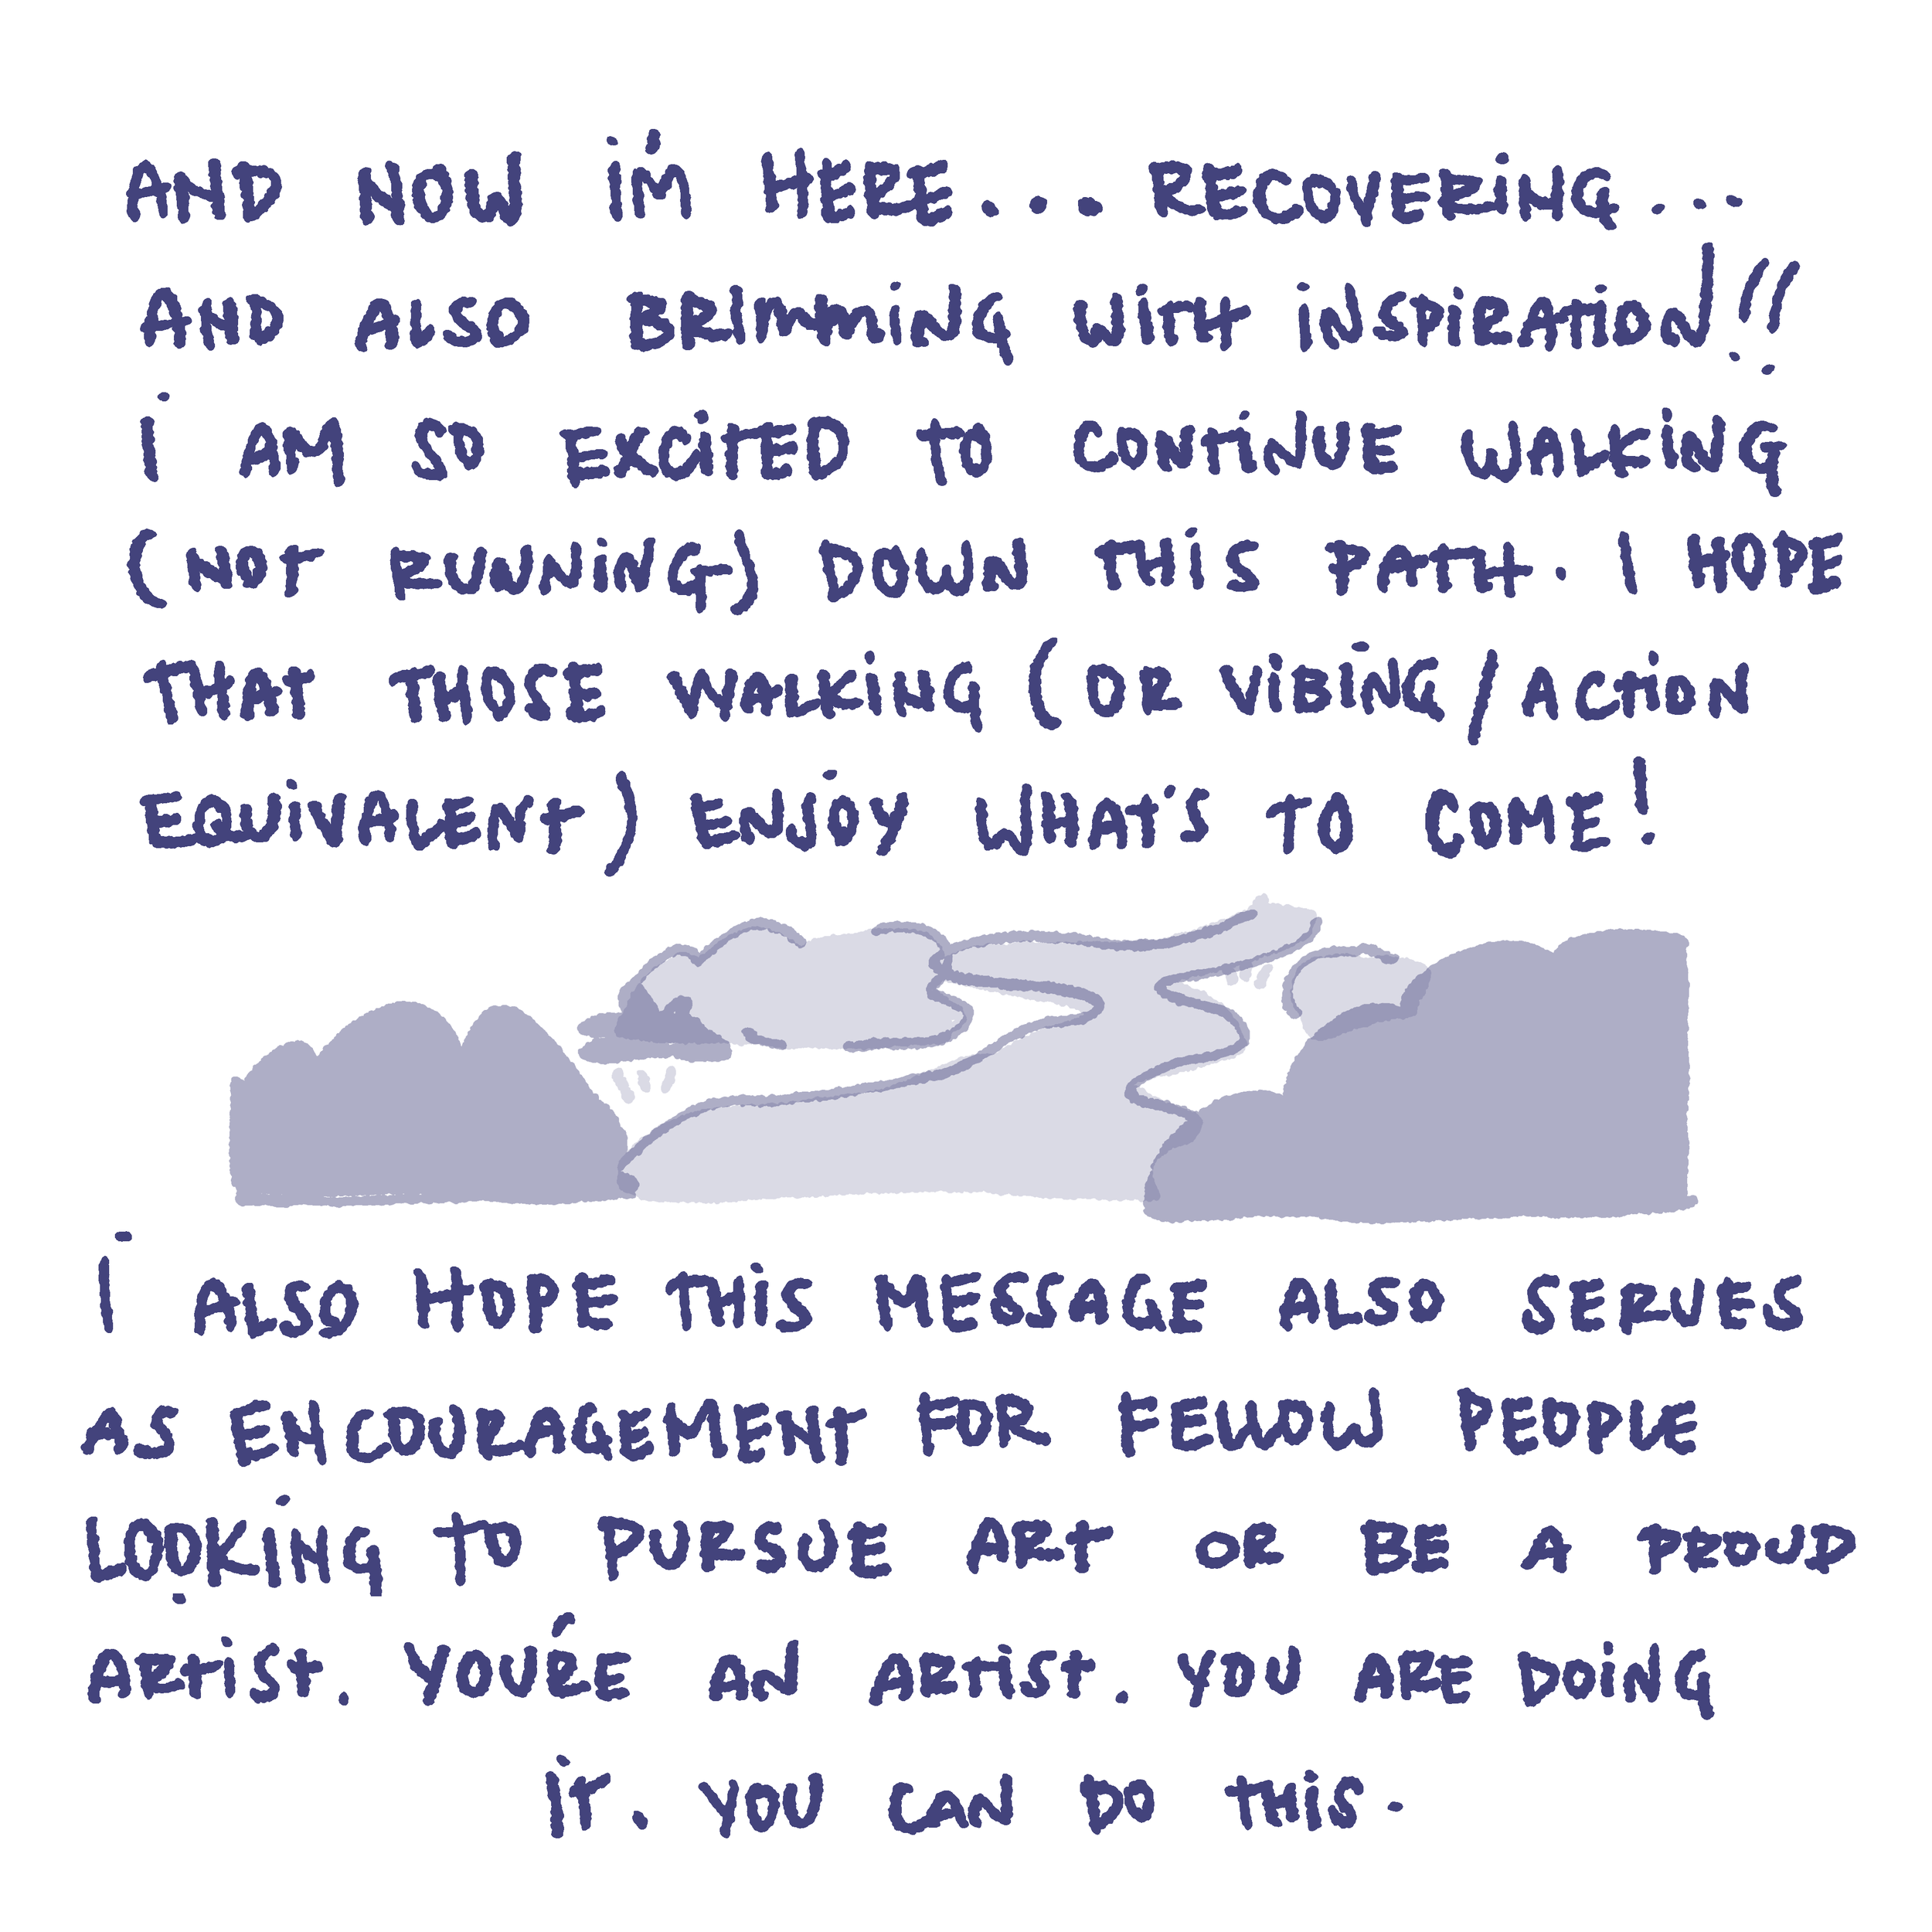 AND NOW I'M HERE... RECOVERING...
AND ALSO BRIMMING WITH INSPIRATION!!!
I AM SO EXCITED TO CONTINUE WALKING
(NOT RUNNING) DOWN THIS PATH. I HOPE
THAT THOSE WALKING (OR VIBING/ACTION
EQUIVALENT) ENJOY WHAT'S TO COME!
I ALSO HOPE THIS MESSAGE ALSO SERVES
AS ENCOURAGEMENT FOR FELLOW PEOPLE
LOOKING TO PURSUE ART OR BE A PROUD
ARTIST. YOU'RE AN ARTIST. YOU ARE DOING
IT. YOU CAN DO THIS.